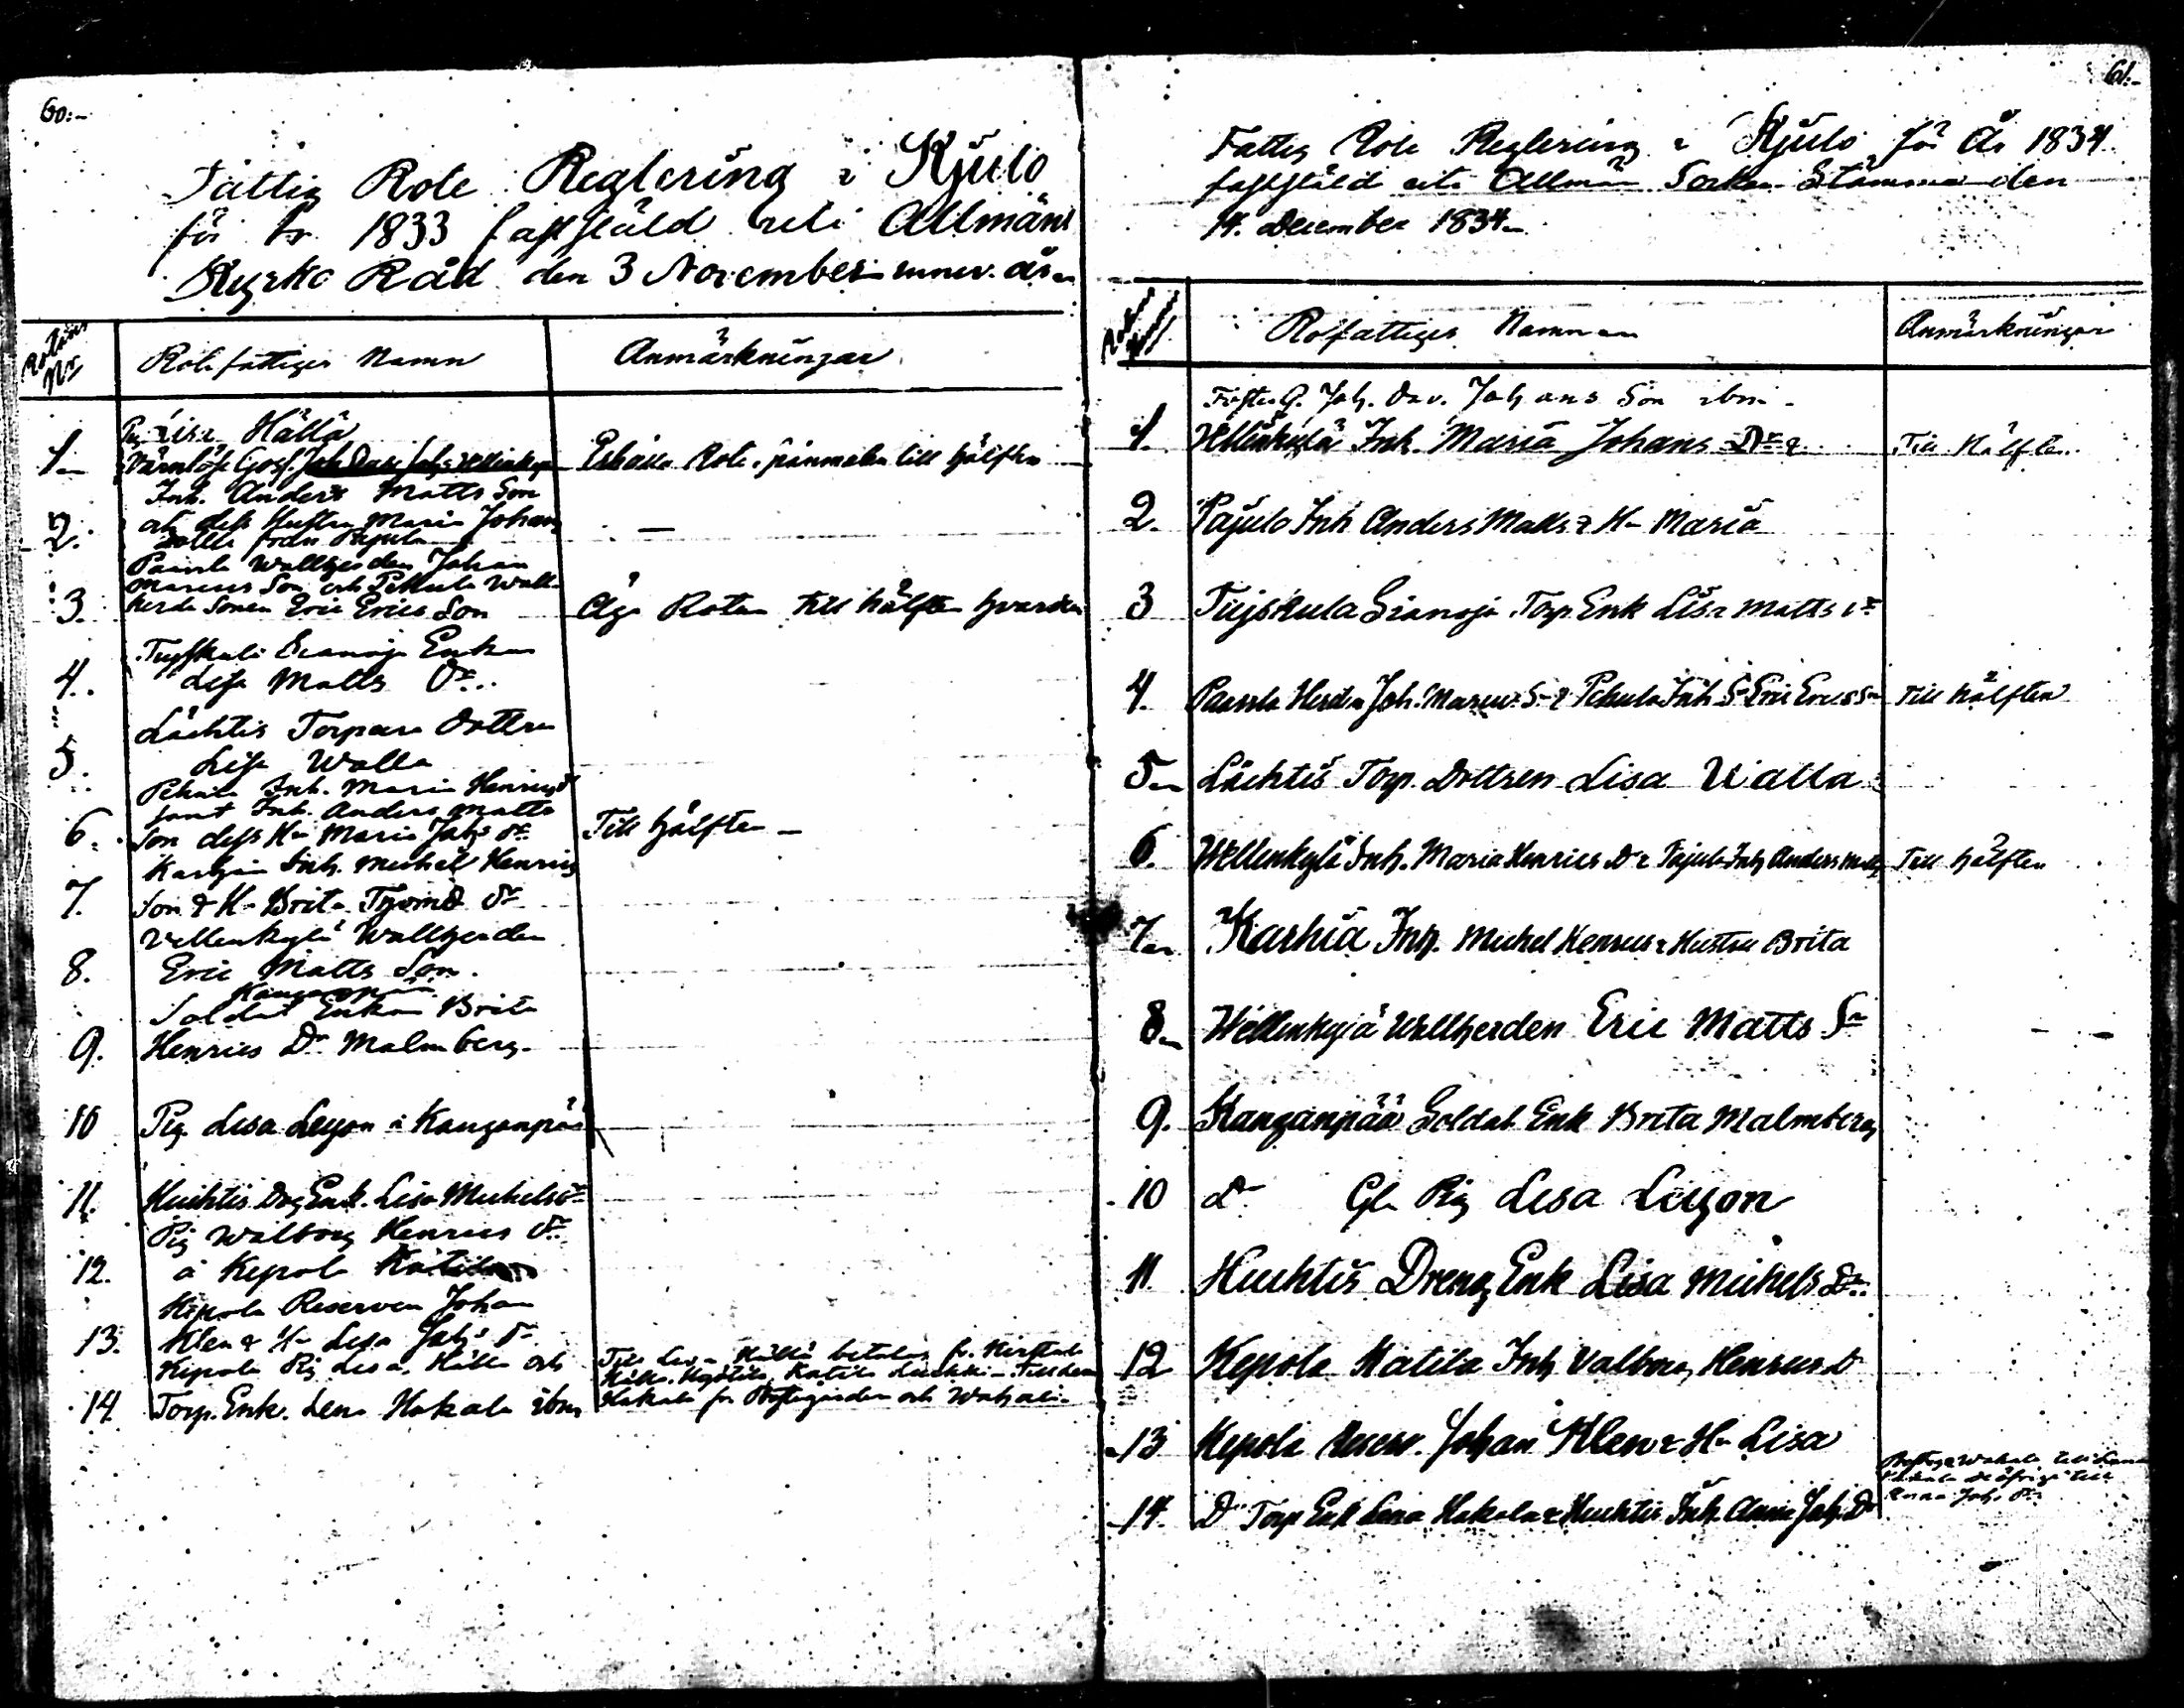 60:-
Fattig Rote Reglering i Kjulo
för År 1833 fastställd uti Allmänt
Kyrko Råd den 3 November innev. år
Rotans Nr
Rotefattiges Namn
Anmärkningar
Pig Lisa Hällä
1. Värnlöse Goss. Joh Dav. Johs Vellenkylä
Rote till hälften
Inh. Anders Matts Son
och dess Hustru Maria Johans
2. Dotter från Pajula
Paavola Wallherden Johan
Marcus Son och Pehula Wall
3. herde Sonen Eric Erics Son
Äga Rotan till hälften hvardera
Tujskula Sianoja Enkan
4. Lisa Matts Dr
Lächtis Torpare Dottren
5. Lisa Walla
Pehula Inh. Maria Henricsdr
samt Inh. Anders Matts
6. Son dess Hu Maria Johs dr
Till hälften
Karhia Inh. Michel Henrics
7. Son & Hu Brita Thomæ dr
Vellenkylä Wallherden
8. Eric Matts Son.
Kanganpää
Soldat Enkan Brita
9. Henrics Dr Malmberg
10 Pig. Lisa Leyon i Kanganpää
11. Huchtis Drg Enk. Lisa Michelsdr
Pig Walborg Henrics dr
12. å Kepola Katila
Kepola Reserven Johan
13. Klen & Hu Lisa Johs dr
Kepola Pig Lisa Hällä och
14. Torp. Enk. Lena Hakala ibm
Till Lisa Hällä betalas fr.
Katila Till Lena
Hakala fr och
61:-
Fattig Rote Reglering i Kjulo för År 1834
fastställd uti Allmän Socken Stämma den
14. December 1834
Rotefattiges Namn
Anmärkningar
Joh. Dav. Johans Son ibm
1. Vellenkylä Inh. Maria Johans Dr
Till Hälften
2. Pajula Inh Anders Matts & Hu Maria
3 Tujskula Sianoja Torp. Enk Lisa Matts dr
4. Paavola Herden Joh. Marcus S & Pehula Inh S Eric Erics Sn
Till hälften
5 Lächtis Torp. Dottren Lisa Walla
6. Wellenkylä Inh. Maria Henrics Dr & Pajula Inh Anders Matts
Till hälften
7 Karhia Inh. Michel Henrics & Hustru Brita
8 Wellenkylä Wallherden Eric Matts Sn
9. Kanganpää Soldat Enk Brita Malmberg
10 Do Gl. Pig Lisa Leyon
11 Huchtis Dreng Enk Lisa Michels Dr
12 Kepola Katila Inh Valborg Henrics Dr
13 Kepola Reserv. Johan Klen & Hu Lisa
14. Do Torp Enk Lena Hakala & Huchtis Inh. Anna Joh. Dr
till Lena
Hakala de öfrige till
Anna Joh. dr